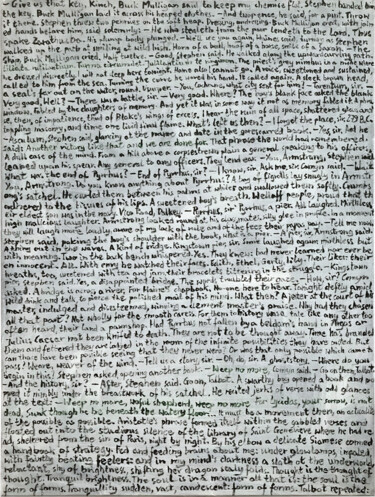 — Give us that key, Kinch, Buck Mulligan said, to keep my chemise flat. Stephen handed him
the key. Buck Mulligan laid it across his heaped clothes. — And twopence, he said, for a pint. Throw
it there. Stephen threw two pennies on the soft heap. Dressing, undressing. Buck Mulligan erect, with joined
hands before him, said solemnly: — He who stealeth from the poor lendeth to the Lord. Thus
spake Zarathustra. His plump body plunged. — We'll see you again, Haines said, turning as Stephen
walked up the path and smiling at wild Irish. Horn of a bull, hoof of a horse, smile of a Saxon. — The
Ship, Buck Mulligan cried. Half twelve. — Good, Stephen said. He walked along the upwardcurving path.
Liliata rutilantium. Turma circumdet. Jubilantium te virginum. The priest's grey nimbus in a niche where
he dressed discreetly. I will not sleep here tonight. Home also I cannot go. A voice, sweettoned and sustained,
called to him from the sea. Turning the curve he waved his hand. It called again. A sleek brown head,
a seal's, far out on the water, round. Usurper. — You, Cochrane, what city sent for him? — Tarentum, sir.
— Very good. Well? — There was a battle, sir. — Very good. Where? The boy's blank face asked the blank
window. Fabled by the daughters of memory. And yet it was in some way if not as memory fabled it. A phrase,
then, of impatience, thud of Blake's wings of excess. I hear the ruin of all space, shattered glass and
toppling masonry, and time one livid final flame. What's left us then? — I forget the place, sir. 279 B.C.
— Asculum, Stephen said, glancing at the name and date in the gorescarred book. — Yes, sir. And he
said: Another victory like that and we are done for. That phrase the world had remembered.
A dull ease of the mind. From a hill above a corpsestrewn plain a general speaking to his officers,
leaned upon his spear. Any general to any officers. They lend ear. — You, Armstrong, Stephen said.
What was the end of Pyrrhus? — End of Pyrrhus, sir? — I know, sir. Ask me, sir, Comyn said. — Wait.
You, Armstrong. Do you know anything about Pyrrhus? A bag of figrolls lay snugly in Armstrong's
satchel. He curled them between his palms at whiles and swallowed them softly. Crumbs
adhered to the tissues of his lips. A sweetened boy's breath. Welloff people, proud that their
eldest son was in the navy. Vico Road, Dalkey. — Pyrrhus, sir? Pyrrhus, a pier. All laughed. Mirthless
high malicious laughter. Armstrong looked round at his classmates, silly glee in profile. In a moment
they will laugh more loudly, aware of my lack of rule and of the fees their papas pay. — Tell me now,
Stephen said, poking the boy's shoulder with the book, what is a pier. — A pier, sir, Armstrong said.
A thing out in the waves. A kind of bridge. Kingstown pier, sir. Some laughed again: mirthless but
with meaning. Two in the back bench whispered. Yes. They knew: had never learned nor ever been
innocent. All. With envy he watched their faces. Edith, Ethel, Gerty, Lily. Their likes: their
breaths, too, sweetened with tea and jam, their bracelets tittering in the struggle. — Kingstown
pier, Stephen said. Yes, a disappointed bridge. The words troubled their gaze. — How, sir? Comyn
asked. A bridge is across a river. For Haines's chapbook. No-one here to hear. Tonight deftly amid
wild drink and talk, to pierce the polished mail of his mind. What then? A jester at the court of his
master, indulged and disesteemed, winning a clement master's praise. Why had they chosen
all that part? Not wholly for the smooth caress. For them too history was a tale like any other too
often heard, their land a pawnshop. Had Pyrrhus not fallen by a beldam's hand in Argos or
Julius Caesar not been knifed to death. They are not to be thought away. Time has branded
them and fettered they are lodged in the room of the infinite possibilities they have ousted. But
can those have been possible seeing that they never were? Or was that only possible which came to
pass? Weave, weaver of the wind. — Tell us a story, sir. — Oh, do, sir. A ghoststory. — Where do you
begin in this? Stephen asked, opening another book. — Weep no more, Comyn said. — Go on then, Talbot.
— And the history, sir? — After, Stephen said. Go on, Talbot. A swarthy boy opened a book and propped
it nimbly under the breastwork of his satchel. He recited jerks of verse with odd glances
at the text: — Weep no more, woful shepherd, weep no more For Lycidas, your sorrow, is not
dead, Sunk though he be beneath the watery floor... It must be a movement then, an actuality
of the possible as possible. Aristotle's phrase formed itself within the gabbled verses and
floated out into the studious silence of the library of Saint Genevieve where he had read,
sheltered from the sin of Paris, night by night. By his elbow a delicate Siamese conned
a handbook of strategy. Fed and feeding brains about me: under glowlamps, impaled,
with faintly beating feelers: and in my mind's darkness a sloth of the underworld,
reluctant, shy of brightness, shifting her dragon scaly folds. Thought is the thought of
thought. Tranquil brightness. The soul is in a manner all that is: the soul is the
form of forms. Tranquility sudden, vast, candescent: form of forms. Talbot repeated: